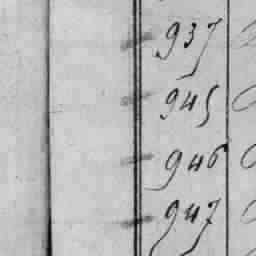 937
945
946
947